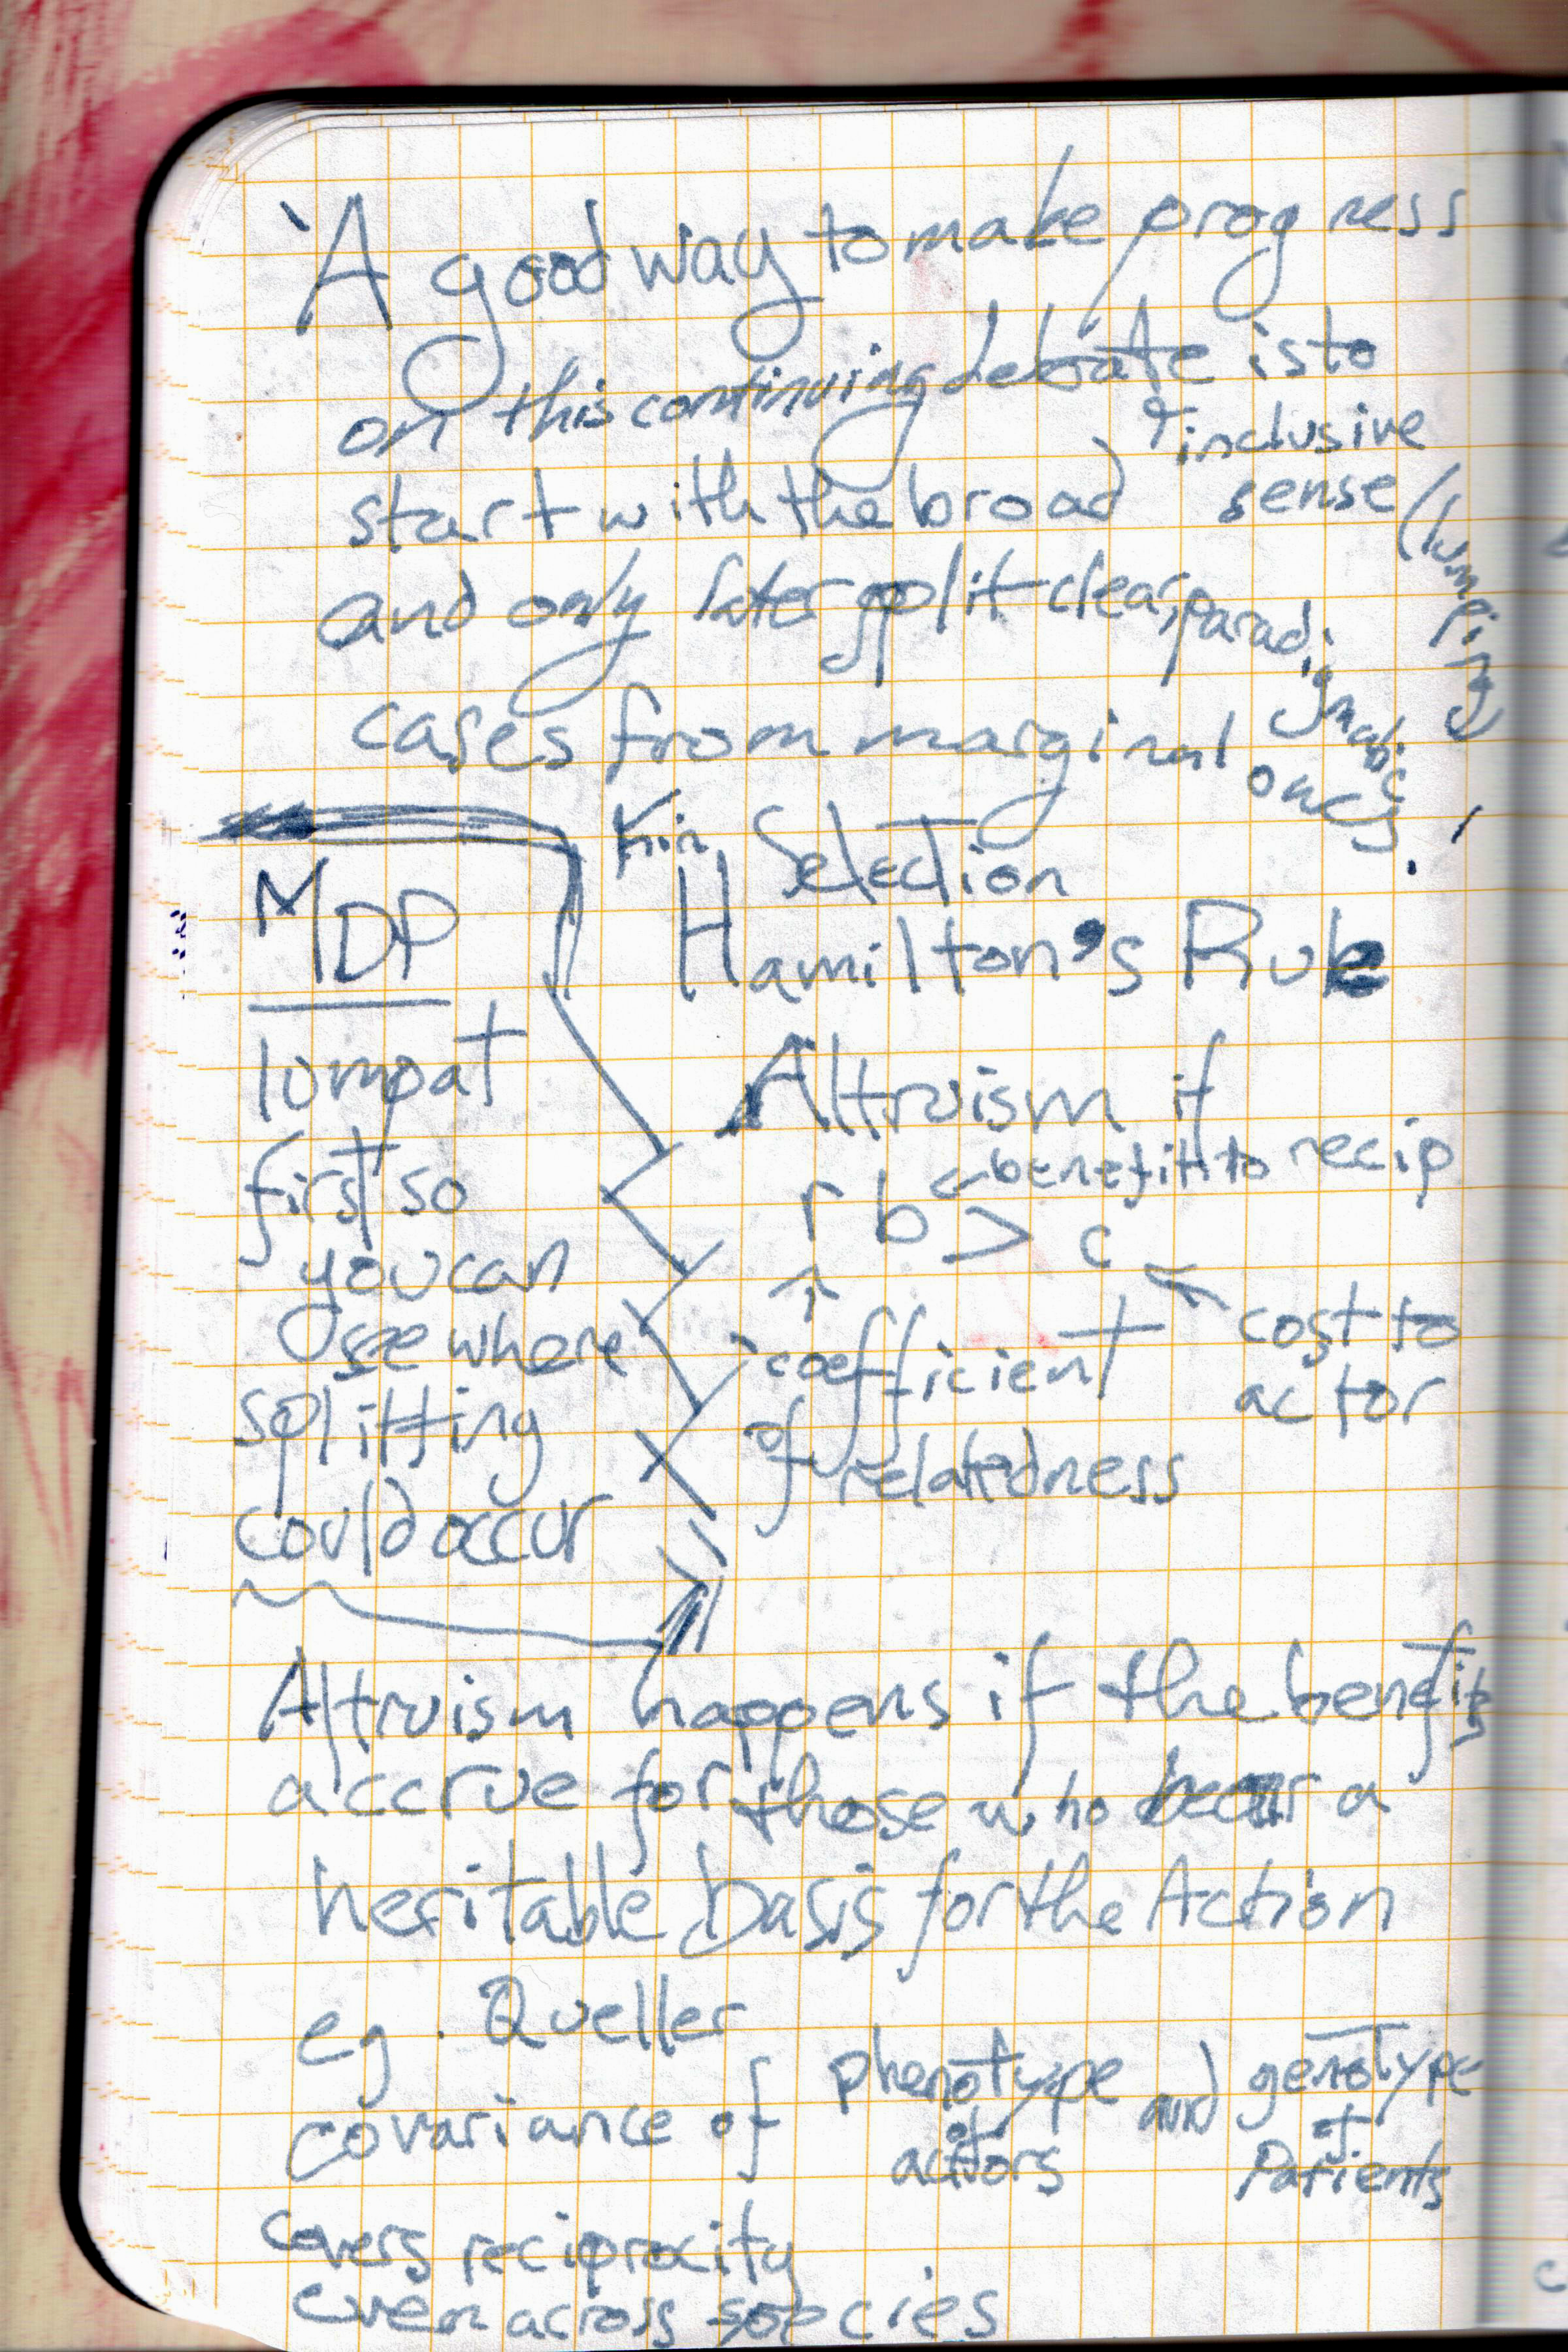 'A good way to make progress
on this continuing debate is to
start with the broad & inclusive
sense (lumping)
and only later split clear, paradigmatic
cases from marginal ones.'
MDP
lumpat
first so
you can
see where
splitting
could occur
Kin Selection
Hamilton's Rule
Altruism if
r b > c
benefit to recip
cost to
actor
coefficient
of relatedness
Altruism happens if the benefits
accrue for those who bear a
heritable basis for the Action
eg. Queller
covariance of phenotype of actors and genotype of Patients
covers reciprocity
even across species